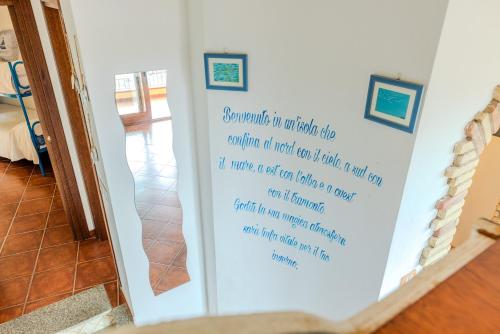 Benvenuto in un'isola che
confina al nord con il cielo, a sud con
il mare, a est con l'alba e a ovest
con il tramonto.
Goditi la sua magica atmosfera
sarà linfa vitale per il tuo
inverno.